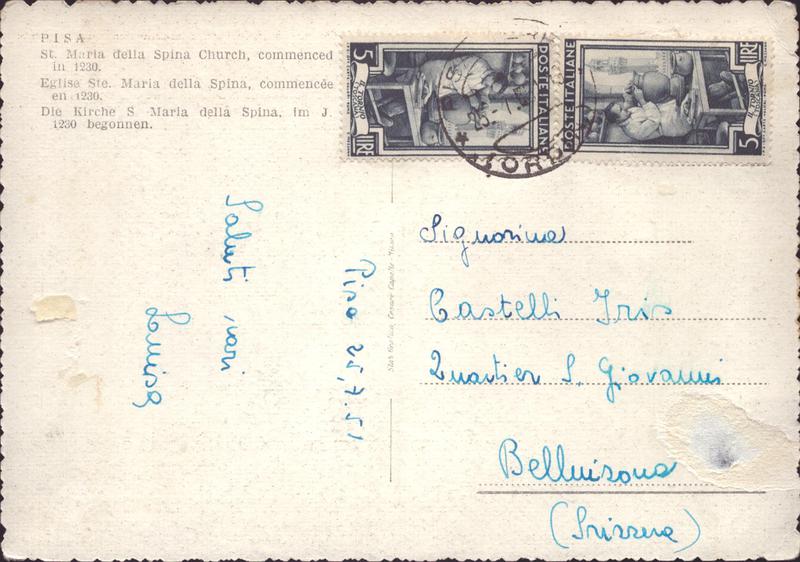 PISA
St. Maria della Spina Church, commenced
in 1230.
Eglise Ste. Maria della Spina, commencée
en 1230.
Die Kirche S. Maria della Spina, im J.
1230 begonnen.
5
LIRE
POSTE ITALIANE
POSTE ITALIANE
LIRE
5
IL TORNIO
Saluti cari
Luisa
Pisa 25.7.51
Signorina
Castelli Iris
Quartier S. Giovanni
Bellinzona
(Svizzera)